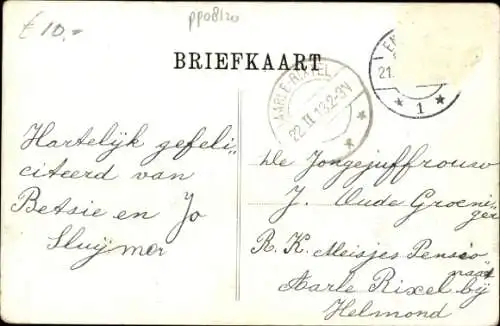 £ 10.-
pp08120
BRIEFKAART
AARLE-RIXTEL
22.II.13.2-3V
21.
1
Hartelijk gefeli=
citeerd van
Betsie en Jo
Sluijmer
De Jongejuffrouw
J. Oude Groeni=
ger
R. K. Meisjes Pensio
naat
Aarle Rixel bij
Helmond